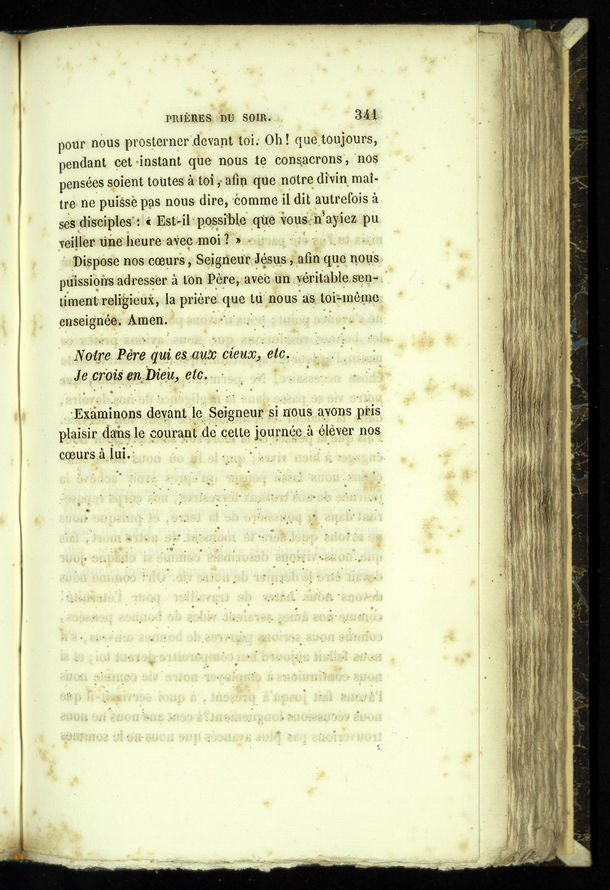 PRIÈRES DU SOIR. 341
pour nous prosterner devant toi. Oh! que toujours,
pendant cet instant que nous te consacrons, nos
pensées soient toutes à toi, afin que notre divin maî-
tre ne puisse pas nous dire, comme il dit autrefois à
ses disciples : « Est-il possible que vous n'ayiez pu
veiller une heure avec moi? »
Dispose nos cœurs, Seigneur Jésus, afin que nous
puissions adresser à ton Père, avec un véritable sen-
timent religieux, la prière que tu nous as toi-même
enseignée. Amen.
Notre Père qui es aux cieux, etc.
Je crois en Dieu, etc.
Examinons devant le Seigneur si nous avons pris
plaisir dans le courant de cette journée à élever nos
cœurs à lui.